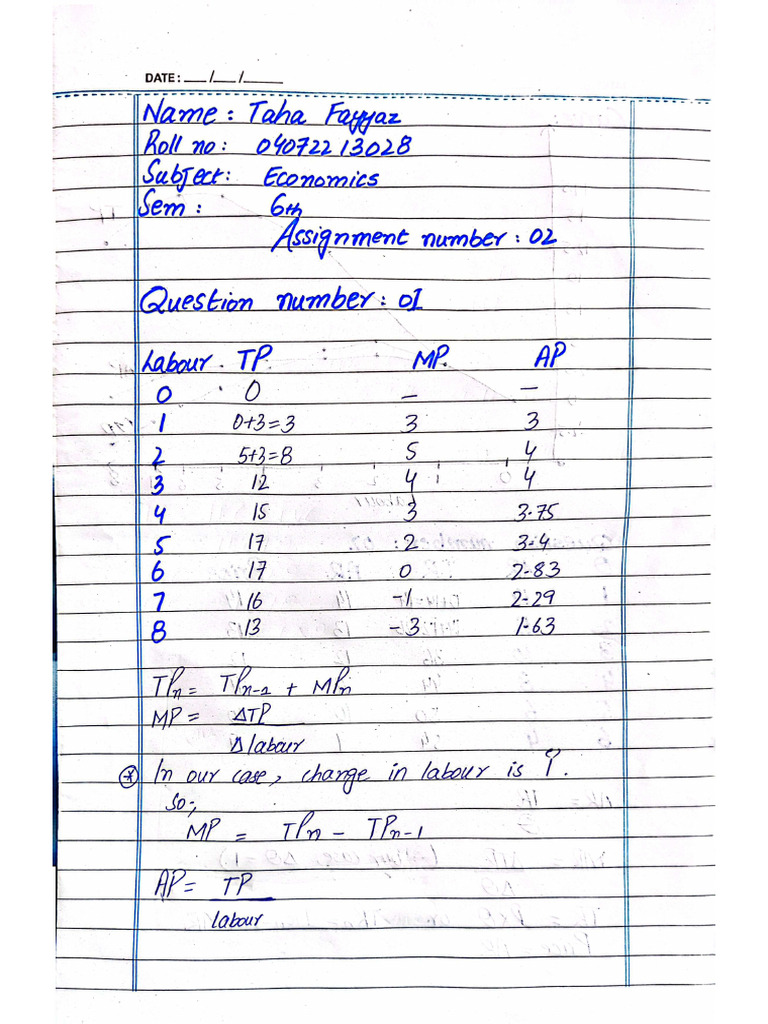 DATE: ___/___/_____
Name: Taha Fayyaz
Roll no: 04072213028
Subject: Economics
Sem: 6th
Assignment number: 02
Question number: 01
Labour TP MP AP
0 0 — —
1 0+3=3 3 3
2 5+3=8 5 4
3 12 4 4
4 15 3 3.75
5 17 2 3.4
6 17 0 2.83
7 16 -1 2.29
8 13 -3 1.63
TPn = TPn-1 + MPn
MP = ΔTP
Δ labour
* In our case, change in labour is 1.
So,
MP = TPn - TPn-1
AP = TP
labour